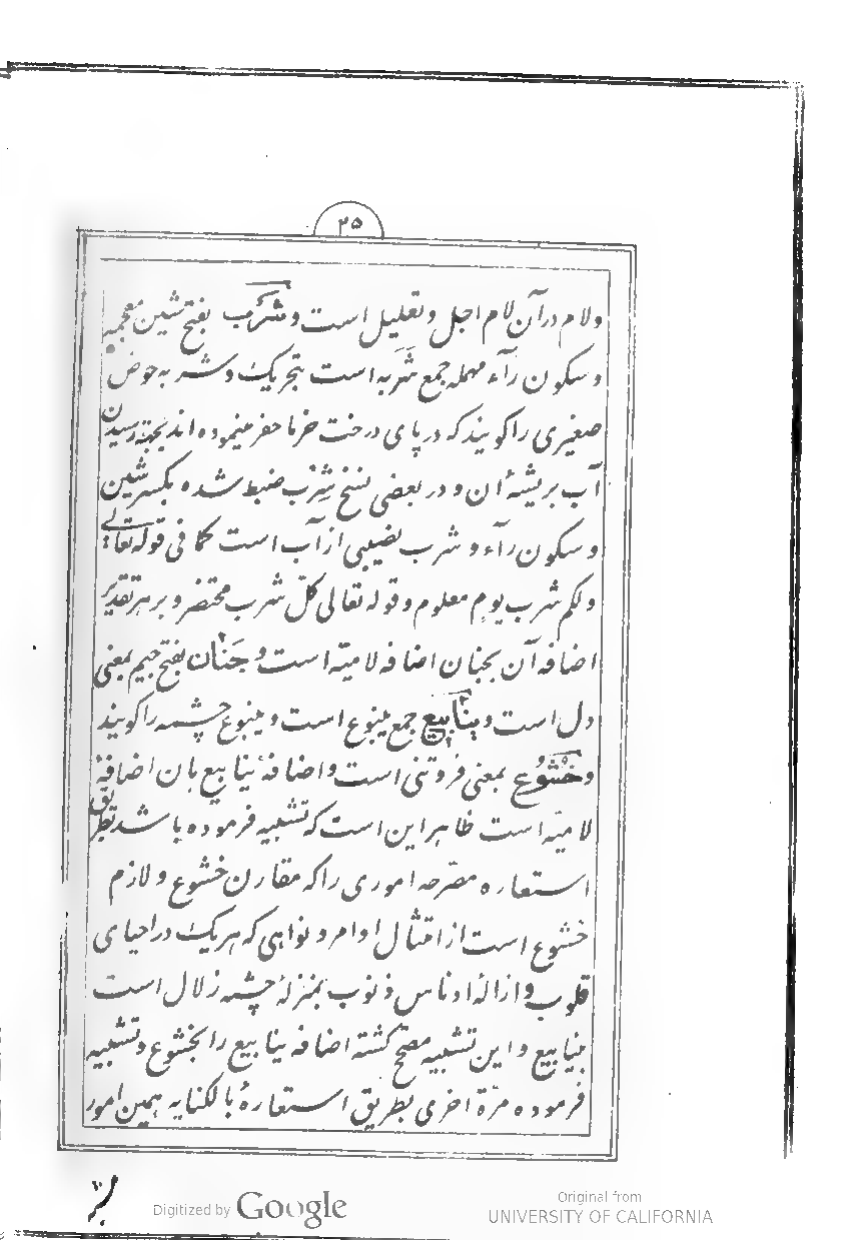 ۲۵
ولام درآن لام اجل وتعلیل است و شَرَب بفتح شین معجمه
و سکون رآء مهمله جمع شَرَبه است بتحریک و شربه حوض
صغیری را گویند که در پای درخت خرما حفر مینموده اند بجهة رسیدن
آب بریشهٔ آن و در بعضی نسخ شِرْب ضبط شده بکسر شین
و سکون رآء و شرب نصیبی از آب است کما فی قوله تعالی
ولکم شرب یوم معلوم وقوله تعالی کلّ شرب محتضر و بر هر تقدیر
اضافه آن بجنان اضافه لامیّه است و جَنَان بفتح جیم بمعنی
دل است و یَنَابیع جمع ینبوع است و ینبوع چشمه را گویند
و خُشُوع بمعنی فروتنی است و اضافهٔ ینابیع بان اضافهٔ
لامیّه است ظاهر این است که تشبیه فرموده باشد بطریق
استعاره مصرّحه اموری را که مقارن خشوع و لازم
خشوع است از امتثال اوامر و نواهی که هریک در احیای
قلوب و ازالهٔ ادناس ذنوب بمنزلهٔ چشمه زلال است
بینابیع و این تشبیه مصحّح گشته اضافه ینابیع را بخشوع و تشبیه
فرموده مرّة اخری بطریق استعارهٔ بالکنایه همین امور
Digitized by Google
Original from
UNIVERSITY OF CALIFORNIA